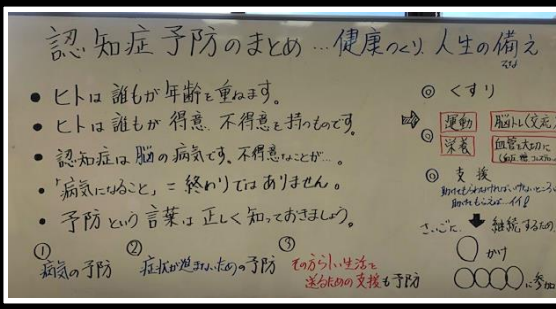 認知症予防のまとめ…健康つくり 人生の備え
そなえ
• ヒトは誰もが年齢を重ねます。
• ヒトは誰もが得意、不得意を持つものです。
• 認知症は脳の病気です。不得意なことが…。
• 「病気になること」=終わりではありません。
• 予防という言葉は正しく知っておきましょう。
① 病気の予防
② 症状が進まないための予防
③ その方らしい生活を
送るための支援も予防
◎ くすり
⇨ ◎ 運動 脳トレ(交流)
栄養 血管を大切に
◎ 支援
さいごに ⬇ 継続するため
〇 かけ
〇〇〇〇に参加